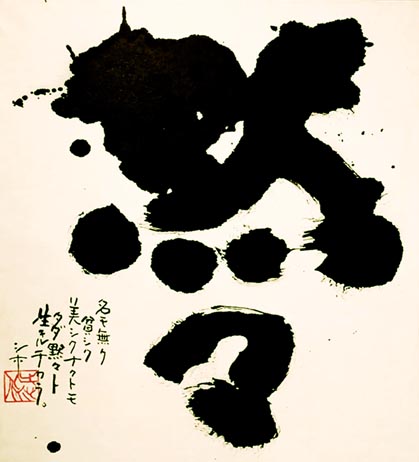 黙々
名モ無ク
貧シク
美シクナクトモ
タダ黙々ト
生キルチカラ。
シホ